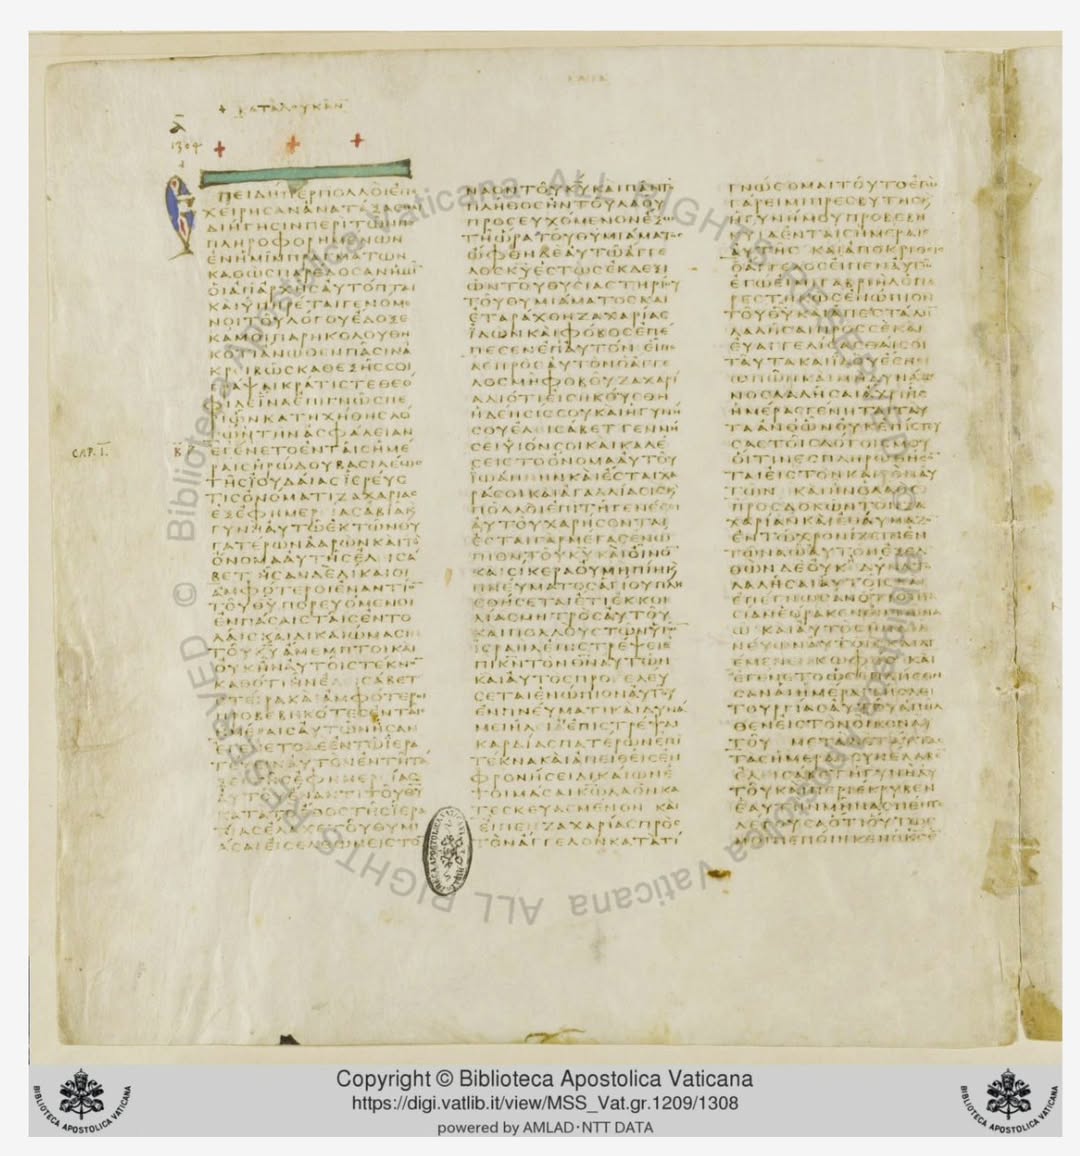 + ΚΑΤΑΛΟΥΚΑΝ
1304
ΠΕΙΔΗΠΕΡΠΟΛΛΟΙΕΠΕ
ΧΕΙΡΗϹΑΝΑΝΑΤΑΞΑϹΘΑΙ
ΔΙΗΓΗϹΙΝΠΕΡΙΤΩΝΠΕ
ΠΛΗΡΟΦΟΡΗΜΕΝΩΝ
ΕΝΗΜΙΝΠΡΑΓΜΑΤΩΝ
ΚΑΘΩϹΠΑΡΕΔΟϹΑΝΗΜΙ
ΟΙΑΠΑΡΧΗϹΑΥΤΟΠΤΑΙ
ΚΑΙΥΠΗΡΕΤΑΙΓΕΝΟΜΕ
ΝΟΙΤΟΥΛΟΓΟΥΕΔΟΞΕ
ΚΑΜΟΙΠΑΡΗΚΟΛΟΥΘΗ
ΚΟΤΙΑΝΩΘΕΝΠΑϹΙΝΑ
ΚΡΕΙΒΩϹΚΑΘΕΞΗϹϹΟΙ
ΓΡΑΨΑΙΚΡΑΤΙϹΤΕΘΕΟ
ΦΙΛΕΙΝΑΕΠΙΓΝΩϹΠΕ
ΡΙΩΝΚΑΤΗΧΗΘΗϹΛΟ
ΓΩΝΤΗΝΑϹΦΑΛΕΙΑΝ
CAP. I.
ΕΓΕΝΕΤΟΕΝΤΑΙϹΗΜΕ
ΡΑΙϹΗΡΩΔΟΥΒΑϹΙΛΕΩϹ
ΤΗϹΙΟΥΔΑΙΑϹΙΕΡΕΥϹ
ΤΙϹΟΝΟΜΑΤΙΖΑΧΑΡΙΑϹ
ΕΞΕΦΗΜΕΡΙΑϹΑΒΙΑΚ
ΓΥΝΗΑΥΤΩΕΚΤΩΝΘΥ
ΓΑΤΕΡΩΝΑΑΡΩΝΚΑΙΤΟ
ΟΝΟΜΑΑΥΤΗϹΕΛΕΙϹΑ
ΒΕΤ ΗϹΑΝΔΕΔΙΚΑΙΟΙ
ΑΜΦΟΤΕΡΟΙΕΝΑΝΤΙΟ
ΤΟΥΘΥΠΟΡΕΥΟΜΕΝΟΙ
ΕΝΠΑϹΑΙϹΤΑΙϹΕΝΤΟ
ΛΑΙϹΚΑΙΔΙΚΑΙΩΜΑϹΙ
ΤΟΥΚΥΑΜΕΜΠΤΟΙΚΑΙ
ΟΥΚΗΝΑΥΤΟΙϹΤΕΚΝΟ
ΚΑΘΟΤΙΗΝΕΛΕΙϹΑΒΕΤ
ϹΤΕΙΡΑΚΑΙΑΜΦΟΤΕΡΟΙ
ΠΡΟΒΕΒΗΚΟΤΕϹΕΝΤΑΙϹ
ΗΜΕΡΑΙϹΑΥΤΩΝΗϹΑΝ
ΕΓΕΝΕΤΟΔΕΕΝΤΩΙΕΡΑ
ΤΕΥΕΙΝΑΥΤΟΝΕΝΤΗΤΑ
ΞΕΙΤΗϹΕΦΗΜΕΡΙΑϹ
ΑΥΤΟΥΕΝΑΝΤΙΤΟΥΘΥ
ΚΑΤΑΤΟΕΘΟϹΤΗϹΙΕΡΑ
ΤΕΙΑϹΕΛΑΧΕΤΟΥΘΥΜΙ
ΑϹΑΙΕΙϹΕΛΘΩΝΕΙϹΤΟ
ΝΑΟΝΤΟΥΚΥΚΑΙΠΑΝΤΟ
ΠΛΗΘΟϹΗΝΤΟΥΛΑΟΥ
ΠΡΟϹΕΥΧΟΜΕΝΟΝΕΞΩ
ΤΗΩΡΑΤΟΥΘΥΜΙΑΜΑΤΟϹ
ΩΦΘΗΔΕΑΥΤΩΑΓΓΕ
ΛΟϹΚΥΕϹΤΩϹΕΚΔΕΞΙ
ΩΝΤΟΥΘΥϹΙΑϹΤΗΡΙΟΥ
ΤΟΥΘΥΜΙΑΜΑΤΟϹΚΑΙ
ΕΤΑΡΑΧΘΗΖΑΧΑΡΙΑϹ
ΙΔΩΝΚΑΙΦΟΒΟϹΕΠΕ
ΠΕϹΕΝΕΠΑΥΤΟΝ ΕΙΠΕ
ΔΕΠΡΟϹΑΥΤΟΝΟΑΓΓΕ
ΛΟϹΜΗΦΟΒΟΥΖΑΧΑΡΙ
ΑΔΙΟΤΙΕΙϹΗΚΟΥϹΘΗ
ΗΔΕΗϹΙϹϹΟΥΚΑΙΗΓΥΝΗ
ϹΟΥΕΛΕΙϹΑΒΕΤΓΕΝΝΗ
ϹΕΙΥΙΟΝϹΟΙΚΑΙΚΑΛΕ
ϹΕΙϹΤΟΟΝΟΜΑΑΥΤΟΥ
ΙΩΑΝΗΝΚΑΙΕϹΤΑΙΧΑ
ΡΑϹΟΙΚΑΙΑΓΑΛΛΙΑϹΙϹΚ
ΠΟΛΛΟΙΕΠΙΤΗΓΕΝΕϹΕΙ
ΑΥΤΟΥΧΑΡΗϹΟΝΤΑΙ
ΕϹΤΑΙΓΑΡΜΕΓΑϹΕΝΩ
ΠΙΟΝΤΟΥΚΥΚΑΙΟΙΝΟ
ΚΑΙϹΙΚΕΡΑΟΥΜΗΠΙΗΚ
ΠΝΕΥΜΑΤΟϹΑΓΙΟΥΠΛΗ
ϹΘΗϹΕΤΑΙΕΤΙΕΚΚΟΙ
ΛΙΑϹΜΗΤΡΟϹΑΥΤΟΥ
ΚΑΙΠΟΛΛΟΥϹΤΩΝΥΙΩ
ΙϹΡΑΗΛΕΠΙϹΤΡΕΨΕΙΕ
ΠΙΚΝΤΟΝΘΝΑΥΤΩΝ
ΚΑΙΑΥΤΟϹΠΡΟϹΕΛΕΥ
ϹΕΤΑΙΕΝΩΠΙΟΝΑΥΤΟΥ
ΕΝΠΝΕΥΜΑΤΙΚΑΙΔΥΝΑ
ΜΕΙΗΛΕΙΑΕΠΙϹΤΡΕΨΑΙ
ΚΑΡΔΙΑϹΠΑΤΕΡΩΝΕΠΙ
ΤΕΚΝΑΚΑΙΑΠΕΙΘΕΙϹΕΝ
ΦΡΟΝΗϹΕΙΔΙΚΑΙΩΝΕ
ΤΟΙΜΑϹΑΙΚΩΛΑΟΝΚΑ
ΤΕϹΚΕΥΑϹΜΕΝΟΝ ΚΑΙ
ΕΙΠΕΝΖΑΧΑΡΙΑϹΠΡΟϹ
ΤΟΝΑΓΓΕΛΟΝΚΑΤΑΤΙ
ΓΝΩϹΟΜΑΙΤΟΥΤΟΕΓΩ
ΓΑΡΕΙΜΙΠΡΕϹΒΥΤΗϹΚ
ΗΓΥΝΗΜΟΥΠΡΟΒΕΒΗ
ΚΥΙΑΕΝΤΑΙϹΗΜΕΡΑΙϹ
ΑΥΤΗϹ ΚΑΙΑΠΟΚΡΙΘΕΙϹ
ΟΑΓΓΕΛΟϹΕΙΠΕΝΑΥΤΩ
ΕΓΩΕΙΜΙΓΑΒΡΙΗΛΟΠΑ
ΡΕϹΤΗΚΩϹΕΝΩΠΙΟΝ
ΤΟΥΘΥΚΑΙΑΠΕϹΤΑΛΗ
ΛΑΛΗϹΑΙΠΡΟϹϹΕΚΑΙ
ΕΥΑΓΓΕΛΙϹΑϹΘΑΙϹΟΙ
ΤΑΥΤΑΚΑΙΙΔΟΥΕϹΗ
ϹΙΩΠΩΝΚΑΙΜΗΔΥΝΑΜΕ
ΝΟϹΛΑΛΗϹΑΙΑΧΡΙΗϹ
ΗΜΕΡΑϹΓΕΝΗΤΑΙΤΑΥ
ΤΑΑΝΘΩΝΟΥΚΕΠΙϹΤΕΥ
ϹΑϹΤΟΙϹΛΟΓΟΙϹΜΟΥ
ΟΙΤΙΝΕϹΠΛΗΡΩΘΗϹΟ
ΤΑΙΕΙϹΤΟΝΚΑΙΡΟΝΑΥ
ΤΩΝ ΚΑΙΗΝΟΛΑΟϹ
ΠΡΟϹΔΟΚΩΝΤΟΝΖΑ
ΧΑΡΙΑΝΚΑΙΕΘΑΥΜΑΖΟ
ΕΝΤΩΧΡΟΝΙΖΕΙΝΕΝ
ΤΩΝΑΩΑΥΤΟΝΕΞΕΛ
ΘΩΝΔΕΟΥΚΕΔΥΝΑΤΟ
ΛΑΛΗϹΑΙΑΥΤΟΙϹΚΑΙ
ΕΠΕΓΝΩϹΑΝΟΤΙΟΠΤΑ
ϹΙΑΝΕΩΡΑΚΕΝΕΝΤΩΝΑ
Ω ΚΑΙΑΥΤΟϹΗΝΔΙΑ
ΝΕΥΩΝΑΥΤΟΙϹΚΑΙΔΙ
ΕΜΕΝΕΝΚΩΦΟϹ ΚΑΙ
ΕΓΕΝΕΤΟΩϹΕΠΛΗϹΘΗ
ϹΑΝΑΙΗΜΕΡΑΙΤΗϹΛΕΙ
ΤΟΥΡΓΙΑϹΑΥΤΟΥΑΠΗΛ
ΘΕΝΕΙϹΤΟΝΟΙΚΟΝΑΥ
ΤΟΥ ΜΕΤΑΔΕΤΑΥΤΑϹ
ΤΑϹΗΜΕΡΑϹϹΥΝΕΛΑΒΕ
ΕΛΕΙϹΑΒΕΤΗΓΥΝΗΑΥ
ΤΟΥΚΑΙΠΕΡΙΕΚΡΥΒΕΝ
ΕΑΥΤΗΝΜΗΝΑϹΠΕΝΤΕ
ΛΕΓΟΥϹΑΟΤΙΟΥΤΩϹ
ΜΟΙΠΕΠΟΙΗΚΕΝΟΚϹ
© Biblioteca Apostolica Vaticana ALL RIGHTS RESERVED
Copyright © Biblioteca Apostolica Vaticana
https://digi.vatlib.it/view/MSS_Vat.gr.1209/1308
powered by AMLAD·NTT DATA
BIBLIOTECA APOSTOLICA VATICANA
BIBLIOTECA APOSTOLICA VATICANA